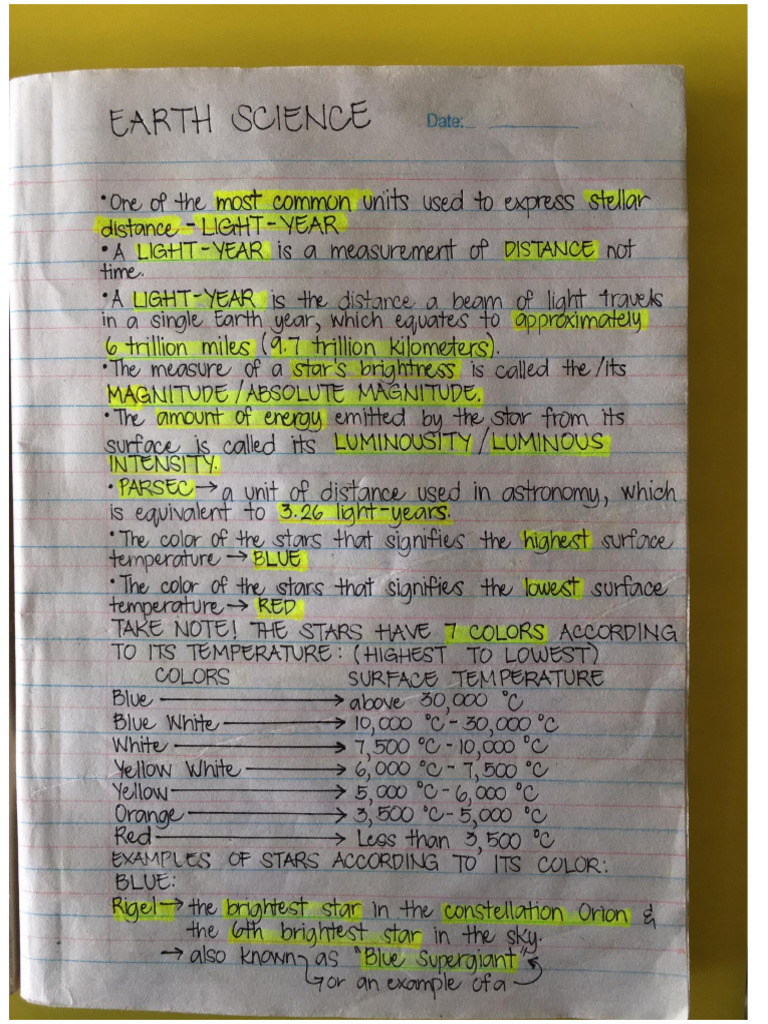 EARTH SCIENCE Date:
• One of the most common units used to express stellar
distance - LIGHT-YEAR
• A LIGHT-YEAR is a measurement of DISTANCE not
time.
• A LIGHT-YEAR is the distance a beam of light travels
in a single Earth year, which equates to approximately
6 trillion miles (9.7 trillion kilometers).
• The measure of a star's brightness is called the/its
MAGNITUDE/ABSOLUTE MAGNITUDE.
• The amount of energy emitted by the star from its
surface is called its LUMINOUSITY/LUMINOUS
INTENSITY.
• PARSEC → a unit of distance used in astronomy, which
is equivalent to 3.26 light-years.
• The color of the stars that signifies the highest surface
temperature → BLUE
• The color of the stars that signifies the lowest surface
temperature → RED
TAKE NOTE! THE STARS HAVE 7 COLORS ACCORDING
TO ITS TEMPERATURE: (HIGHEST TO LOWEST)
COLORS SURFACE TEMPERATURE
Blue → above 30,000 °C
Blue White → 10,000 °C - 30,000 °C
White → 7,500 °C - 10,000 °C
Yellow White → 6,000 °C - 7,500 °C
Yellow → 5,000 °C - 6,000 °C
Orange → 3,500 °C - 5,000 °C
Red → Less than 3,500 °C
EXAMPLES OF STARS ACCORDING TO ITS COLOR:
BLUE:
Rigel → the brightest star in the constellation Orion &
the 6th brightest star in the sky.
→ also known as "Blue Supergiant"
or an example of a